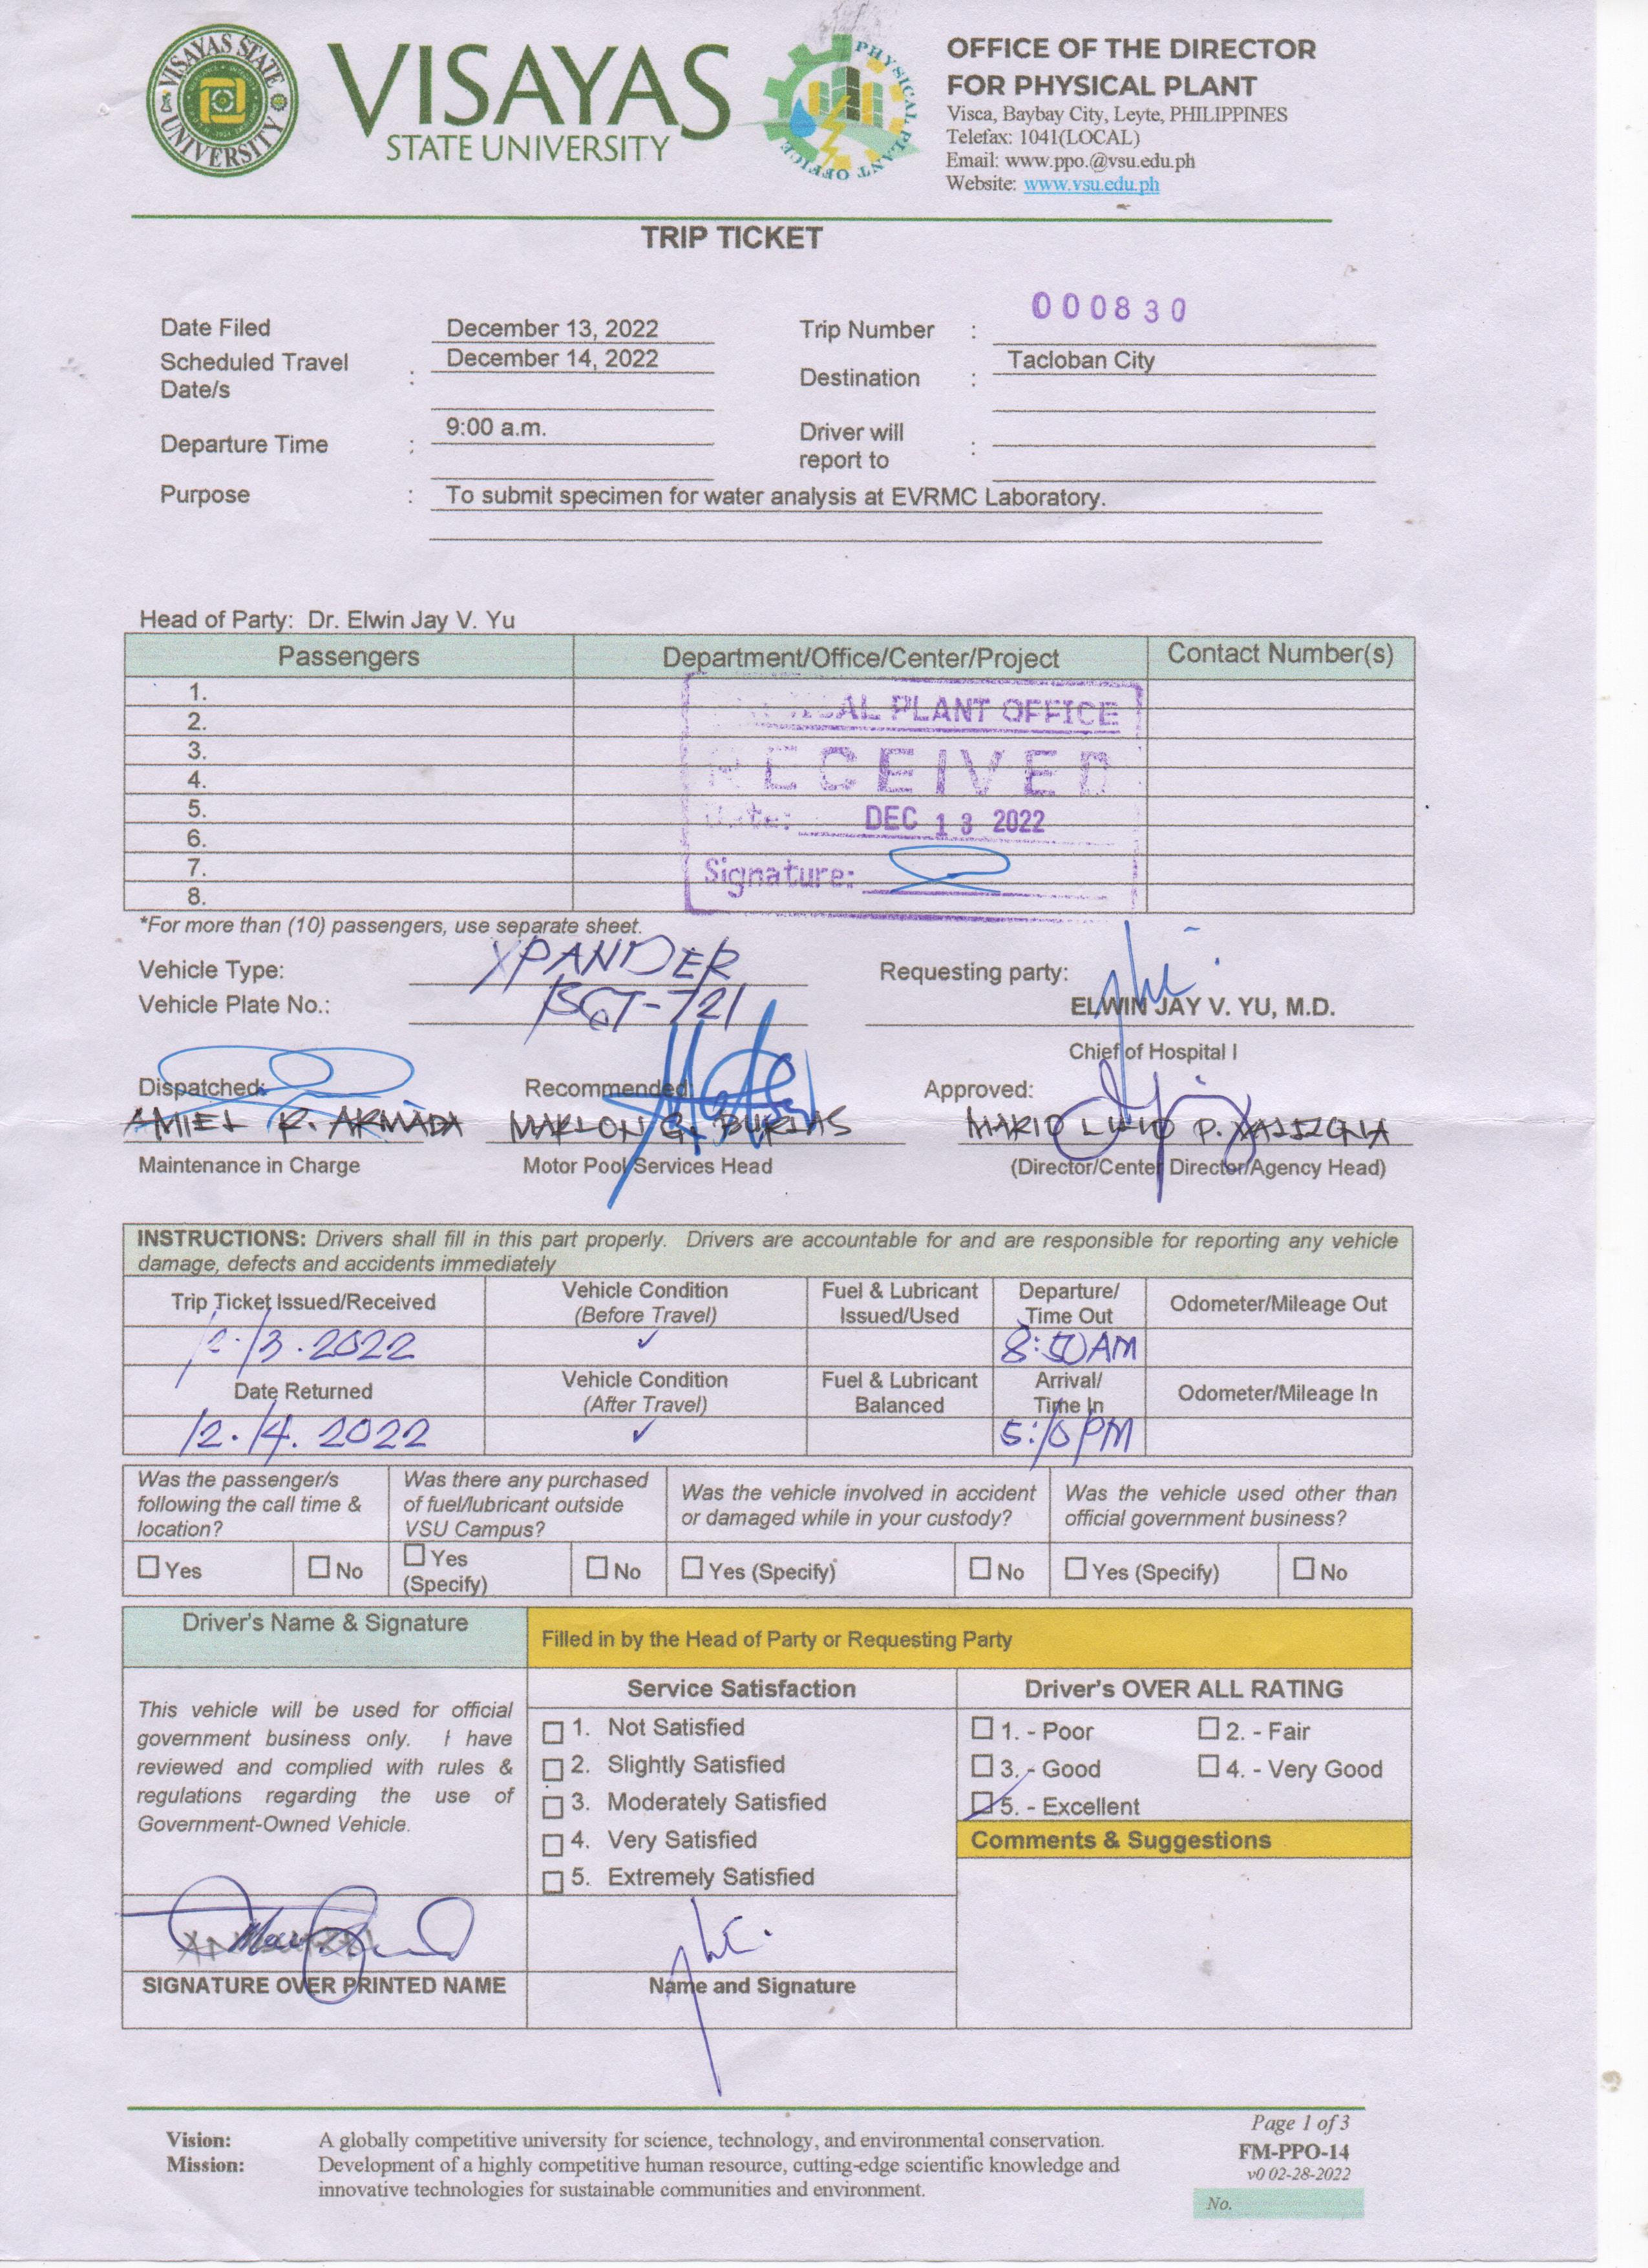 VISAYAS STATE UNIVERSITY
VISAYAS
STATE UNIVERSITY
PHYSICAL PLANT OFFICE
OFFICE OF THE DIRECTOR
FOR PHYSICAL PLANT
Visca, Baybay City, Leyte, PHILIPPINES
Telefax: 1041(LOCAL)
Email: www.ppo.@vsu.edu.ph
Website: www.vsu.edu.ph
TRIP TICKET
Date Filed December 13, 2022 Trip Number : 000830
Scheduled Travel Date/s : December 14, 2022 Destination : Tacloban City
Departure Time : 9:00 a.m. Driver will report to :
Purpose : To submit specimen for water analysis at EVRMC Laboratory.
Head of Party: Dr. Elwin Jay V. Yu
Passengers Department/Office/Center/Project Contact Number(s)
1.
2.
3.
4.
5.
6.
7.
8.
PLANT OFFICE
RECEIVED
Date: DEC 13 2022
Signature:
*For more than (10) passengers, use separate sheet.
Vehicle Type: XPANDER Requesting party:
Vehicle Plate No.: ELWIN JAY V. YU, M.D.
Chief of Hospital I
Dispatched: Recommended: Approved:
AMIEL R. ARMADA MARLON G. BURLAS MARIO LILIO P. VALENZONA
Maintenance in Charge Motor Pool Services Head (Director/Center Director/Agency Head)
INSTRUCTIONS: Drivers shall fill in this part properly. Drivers are accountable for and are responsible for reporting any vehicle
damage, defects and accidents immediately
Trip Ticket Issued/Received Vehicle Condition (Before Travel) Fuel & Lubricant Issued/Used Departure/ Time Out Odometer/Mileage Out
12.13.2022 ✓ 8:50AM
Date Returned Vehicle Condition (After Travel) Fuel & Lubricant Balanced Arrival/ Time In Odometer/Mileage In
12.14.2022 ✓ PM
Was the passenger/s following the call time & location? Was there any purchased of fuel/lubricant outside VSU Campus? Was the vehicle involved in accident or damaged while in your custody? Was the vehicle used other than official government business?
☐ Yes ☐ No ☐ Yes (Specify) ☐ No ☐ Yes (Specify) ☐ No ☐ Yes (Specify) ☐ No
Driver's Name & Signature
Filled in by the Head of Party or Requesting Party
This vehicle will be used for official
government business only. I have
reviewed and complied with rules &
regulations regarding the use of
Government-Owned Vehicle.
SIGNATURE OVER PRINTED NAME
Service Satisfaction
☐ 1. Not Satisfied
☐ 2. Slightly Satisfied
☐ 3. Moderately Satisfied
☐ 4. Very Satisfied
☐ 5. Extremely Satisfied
Name and Signature
Driver's OVER ALL RATING
☐ 1. - Poor ☐ 2. - Fair
☐ 3. - Good ☐ 4. - Very Good
☑ 5. - Excellent
Comments & Suggestions
Vision: A globally competitive university for science, technology, and environmental conservation.
Mission: Development of a highly competitive human resource, cutting-edge scientific knowledge and
innovative technologies for sustainable communities and environment.
Page 1 of 3
FM-PPO-14
v0 02-28-2022
No.